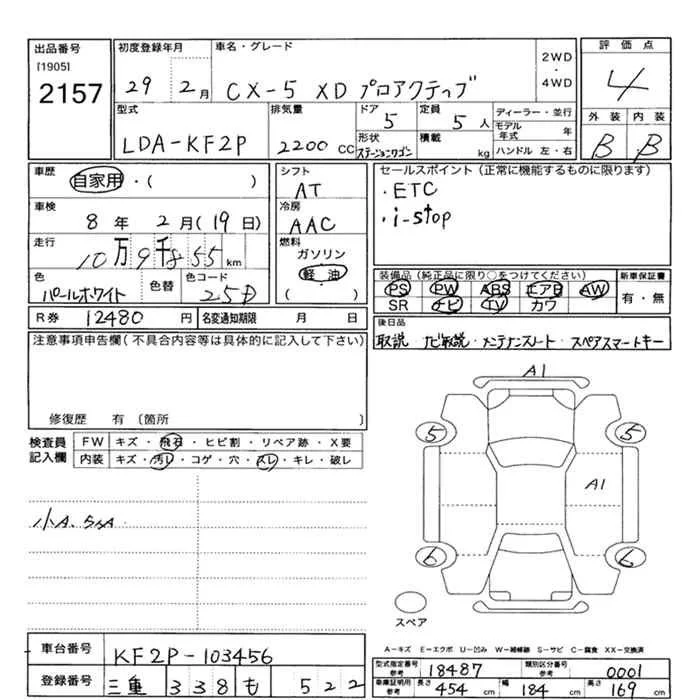 出品番号 初度登録年月 車名・グレード 2WD・4WD 評価点
[1905] 2157 29年 2月 CX-5 XD プロアクティブ 4
型式 排気量 ドア 定員 ディーラー・並行 外装 内装
LDA-KF2P 2200CC 5 5人 モデル年式 年 B B
形状 ステーションワゴン 積載 kg ハンドル 左・右
車歴 自家用・( ) シフト AT セールスポイント(正常に機能するものに限ります)
・ETC
・i-stop
車検 8年 2月(19日) 冷房 AAC
走行 10万9千855km 燃料 ガソリン 軽油 ( )
色 パールホワイト 色替 色コード 25D
装備品(純正品に限り○をつけてください) 新車保証書
PS PW ABS エアB AW 有・無
SR ナビ TV カワ
R券 12480円 名変通知期限 月 日
後日品
取説・ナビ取説・メンテナンスノート・スペアスマートキー
注意事項申告欄(不具合内容等は具体的に記入して下さい)
修復歴 有(箇所
検査員記入欄 FW キズ・飛石・ヒビ割・リペア跡・X要
内装 キズ・汚レ・コゲ・穴・スレ・キレ・破レ
小A.
A1
5 5
A1
6
スペア
A-キズ E-エクボ U-凹み W-補修跡 S-サビ C-腐食 XX-交換済
車台番号 KF2P-103456
登録番号 三重 338 も 522
型式指定番号 参考 18487 類別区分番号 参考 0001
車庫証明用 参考 長さ 454cm 幅 184cm 高さ 169cm